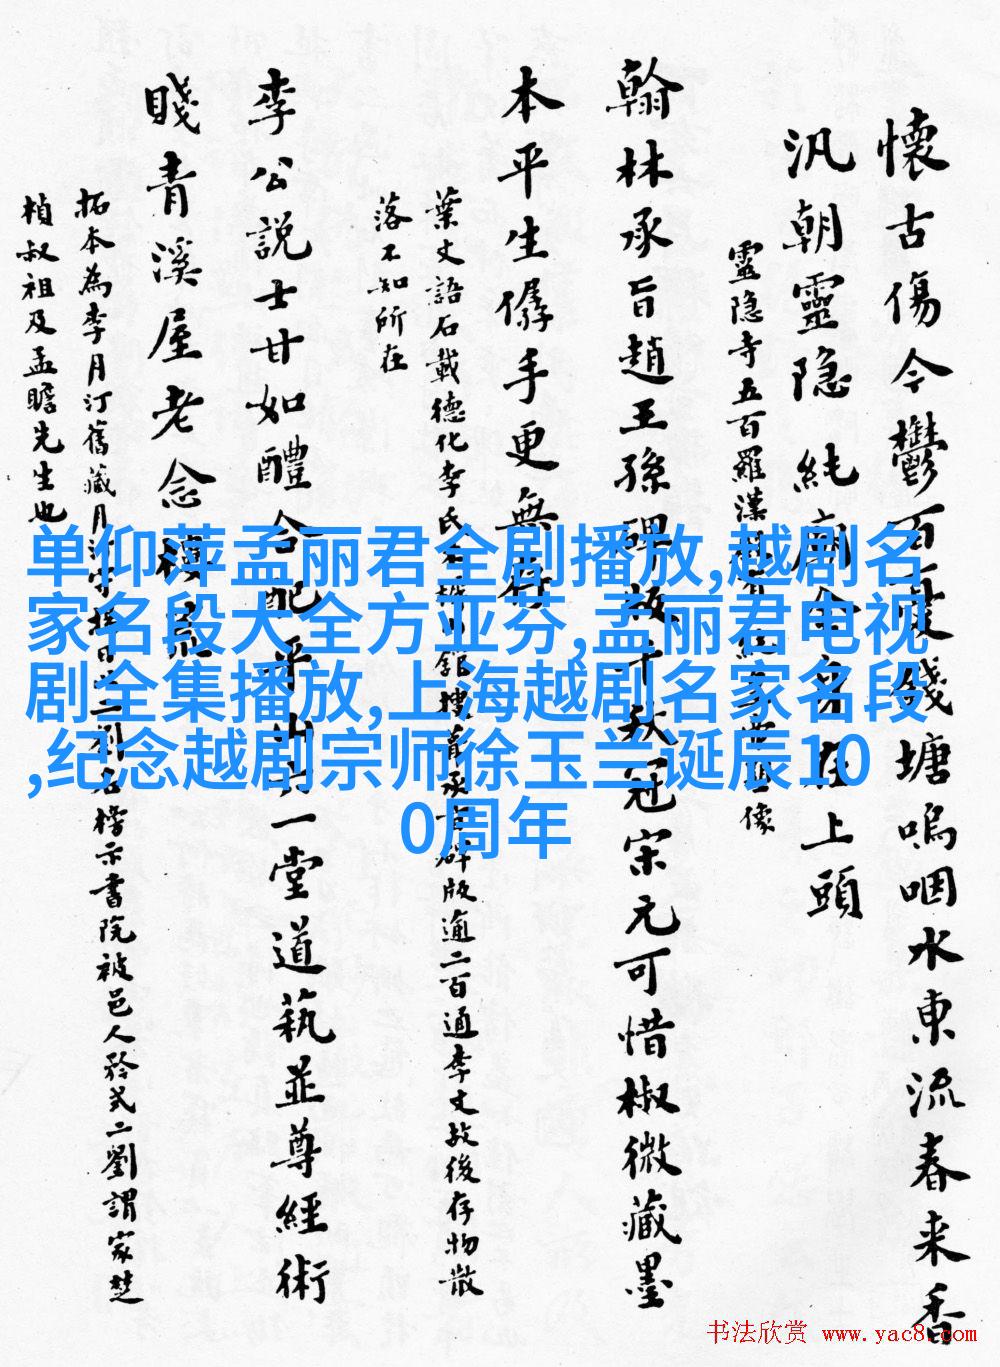 懷古傷今鬱百憂錢塘嗚咽水東流春来香
汎朝靈隐純廟金身在上頭
靈隐寺五百羅漢像
翰林承旨趙王孫碑版千秋冠宋元可惜椒微藏墨
本平生手更無
葉文語石載德化李氏承旨碑版逾二百通李文故後存物散
落不知所在
李公說士甘如醴合配平山一堂道藝並尊經術
賤青溪屋老念
拓本為李月汀舊藏月名榜示書院被邑人矜式二劉謂家楚
楨叔祖及孟瞻先生也
单仰萍孟丽君全剧播放,越剧名
家名段大全方亚芬,孟丽君电视
剧全集播放,上海越剧名家名段
,纪念越剧宗师徐玉兰诞辰10
0周年
书法欣赏 www.yac8.com